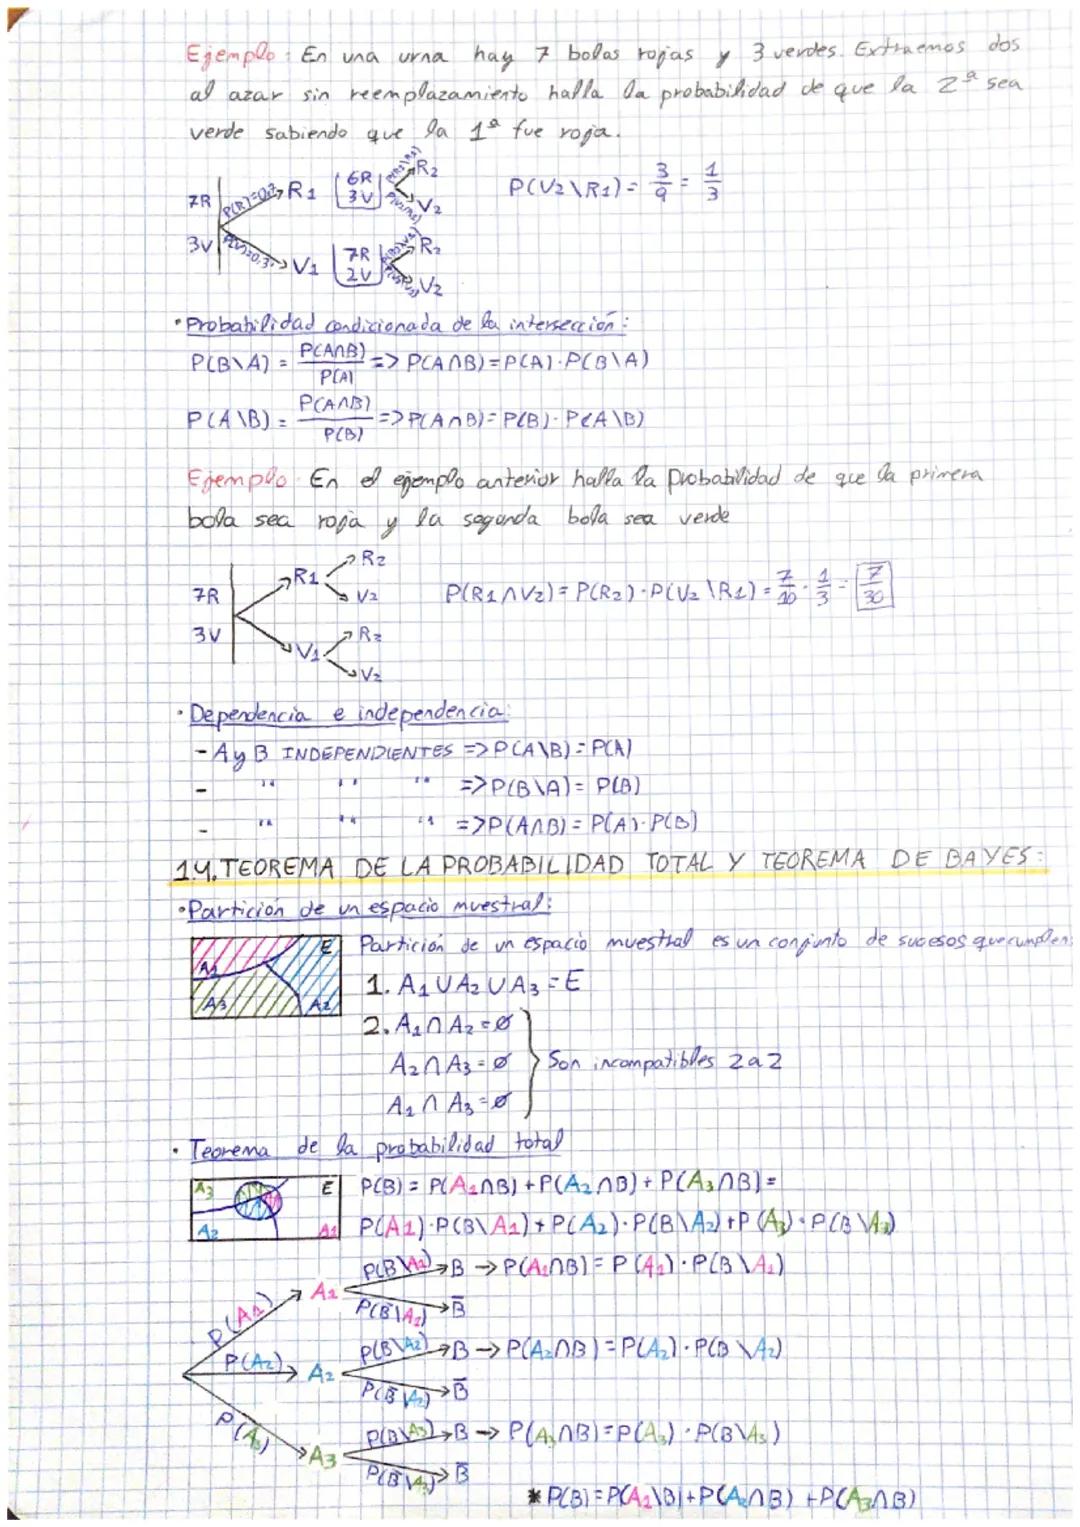 Ejemplo: En una urna hay 7 bolas rojas y 3 verdes. Extraemos dos
al azar sin reemplazamiento halla la probabilidad de que la 2ª sea
verde sabiendo que la 1ª fue roja.
7R
3V
P(R)=0,7
R1
6R
3V
P(R2\R1)
R2
P(V2\R1)
V2
P(V2\R1) = 3/9 = 1/3
P(V)=0,3
V1
7R
2V
P(R2\V1)
R2
V2
• Probabilidad condicionada de la intersección:
P(B\A) = P(A∩B)/P(A) => P(A∩B) = P(A)·P(B\A)
P(A\B) = P(A∩B)/P(B) => P(A∩B) = P(B)·P(A\B)
Ejemplo: En el ejemplo anterior halla la probabilidad de que la primera
bola sea roja y la segunda bola sea verde
7R
3V
R1
R2
V2
V1
R2
V2
P(R1∩V2) = P(R2)·P(V2\R1) = 7/10 · 1/3 = 7/30
• Dependencia e independencia:
- A y B INDEPENDIENTES => P(A\B) = P(A)
- " " " => P(B\A) = P(B)
- " " " => P(A∩B) = P(A)·P(B)
1.4. TEOREMA DE LA PROBABILIDAD TOTAL Y TEOREMA DE BAYES:
• Partición de un espacio muestral:
E
A1
A3
A2
Partición de un espacio muestral es un conjunto de sucesos que cumplen:
1. A1 ∪ A2 ∪ A3 = E
2. A1 ∩ A2 = ∅
A2 ∩ A3 = ∅
A1 ∩ A3 = ∅
Son incompatibles 2 a 2
• Teorema de la probabilidad total
A3
E
A2
A1
P(B) = P(A1∩B) + P(A2∩B) + P(A3∩B) =
P(A1)·P(B\A1) + P(A2)·P(B\A2) + P(A3)·P(B\A3)
P(A1)
A1
P(B\A1)
B → P(A1∩B) = P(A1)·P(B\A1)
P(B̅\A1)
B̅
P(A2)
A2
P(B\A2)
B → P(A2∩B) = P(A2)·P(B\A2)
P(B̅\A2)
B̅
P(A3)
A3
P(B\A3)
B → P(A3∩B) = P(A3)·P(B\A3)
P(B̅\A3)
B̅
* P(B) = P(A1\B) + P(A2∩B) + P(A3∩B)